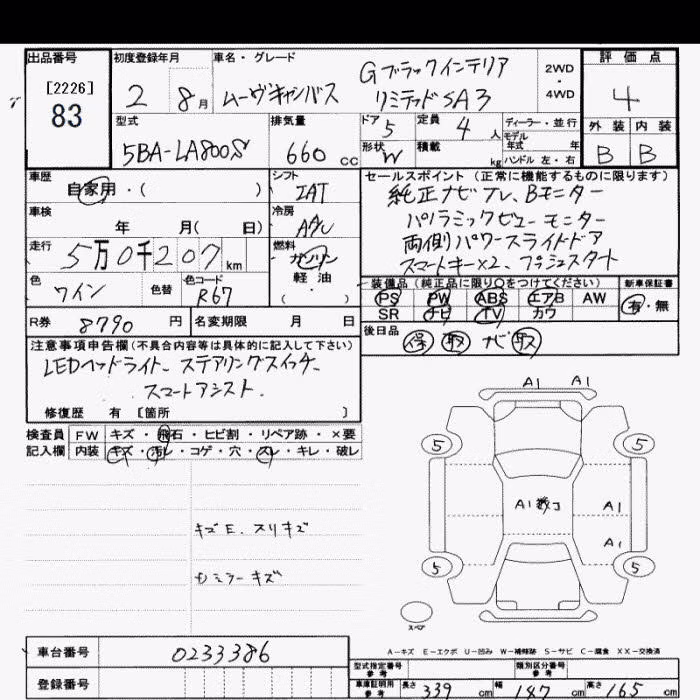 出品番号 初度登録年月 車名・グレード 評価点
[2226]
83
2 8月 ムーヴキャンバス Gブラックインテリア リミテッドSA3 2WD・4WD 4
型式 排気量 ドア 定員 ディーラー・並行 外装 内装
5BA-LA800S 660cc 5 4人 モデル年式 年 B B
形状 W 積載 kg ハンドル 左・右
車歴 シフト セールスポイント (正常に機能するものに限ります)
自家用・( ) IAT 純正ナビTV、Bモニター
車検 冷房 パノラミックビューモニター
年 月( 日) A/C 両側パワースライドドア
走行 燃料 スマートキー×2、プッシュスタート
5万0千207km ガソリン
軽油
( )
色 色替 色コード 装備品(純正品に限り○をつけてください) 新車保証書
ワイン R67 PS PW ABS エアB AW 有・無
SR ナビ TV カワ
R券 8790円 名変期限 月 日 後日品 保 取 ナビ取
注意事項申告欄(不具合内容等は具体的に記入して下さい)
LEDヘッドライト、ステアリングスイッチ、
スマートアシスト.
修復歴 有 [箇所 ]
検査員 FW キズ・飛石・ヒビ割・リペア跡・×要
記入欄 内装 キズ・汚レ・コゲ・穴・スレ・キレ・破レ
A1 A1
5 5
A1 A1
キズE、スリキズ A1
ミラーキズ
5 5
スペア
A-キズ E-エクボ U-凹み W-補修跡 S-サビ C-腐食 XX-交換済
車台番号 0233386
型式指定番号 参考 類別区分番号 参考
登録番号 車庫証明用 参考 長さ 339cm 幅 187cm 高さ 165cm